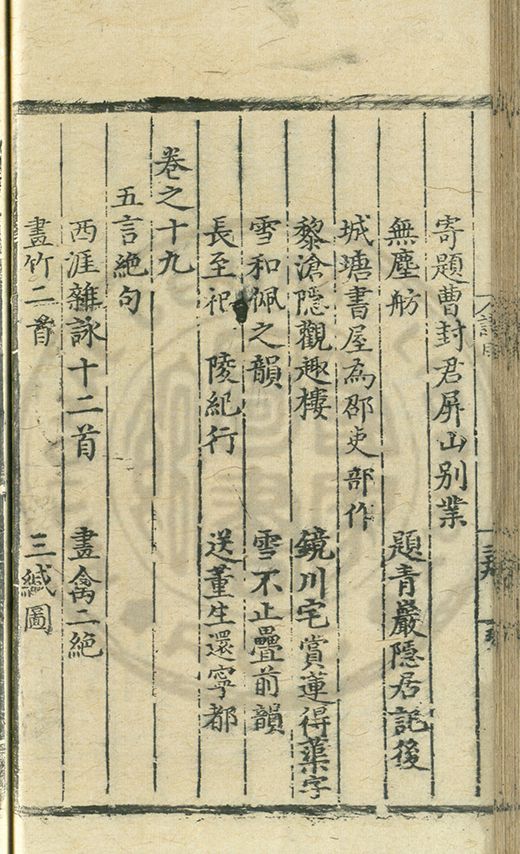 寄題曹封君屏山別業
無塵舫　題青巖隱居記後
城塘書屋為邵吏部作
黎滄隱觀趣樓　鏡川宅賞蓮得藻字
雪和佩之韻　雪不止疊前韻
長至祀　陵紀行　送董生還寧都
卷之十九
五言絕句
西涯雜詠十二首　畫禽二絕
畫竹二首　三緘圖